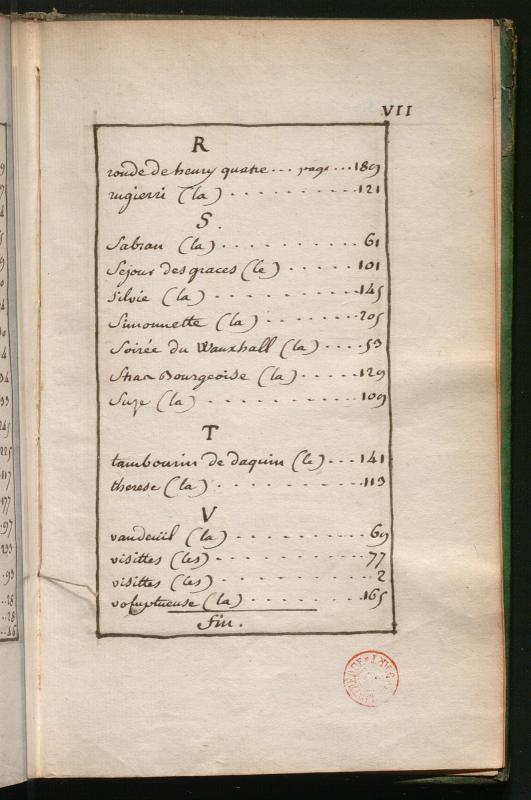 VII
R
ronde de henry quatre ... page ... 189
rugierri (la) . . . . . . . . . 121
S.
Sabran (la) . . . . . . . . . . 61
Sejour des graces (le) . . . . . 101
Silvie (la) . . . . . . . . . . 145
Simonnette (la) . . . . . . . 205
Soirée du Wauxhall (la) . . . . 53
Stras Bourgeoise (la) . . . . . 129
Suze (la) . . . . . . . . . . . 109
T
tambourin de daquin (le) . . . 141
therese (la) . . . . . . . . . . 113
V
vaudeuil (la) . . . . . . . . . 69
visittes (les) . . . . . . . . . . 77
visittes (les) . . . . . . . . . . 2
voluptueuse (la) . . . . . . . . 165
fin.